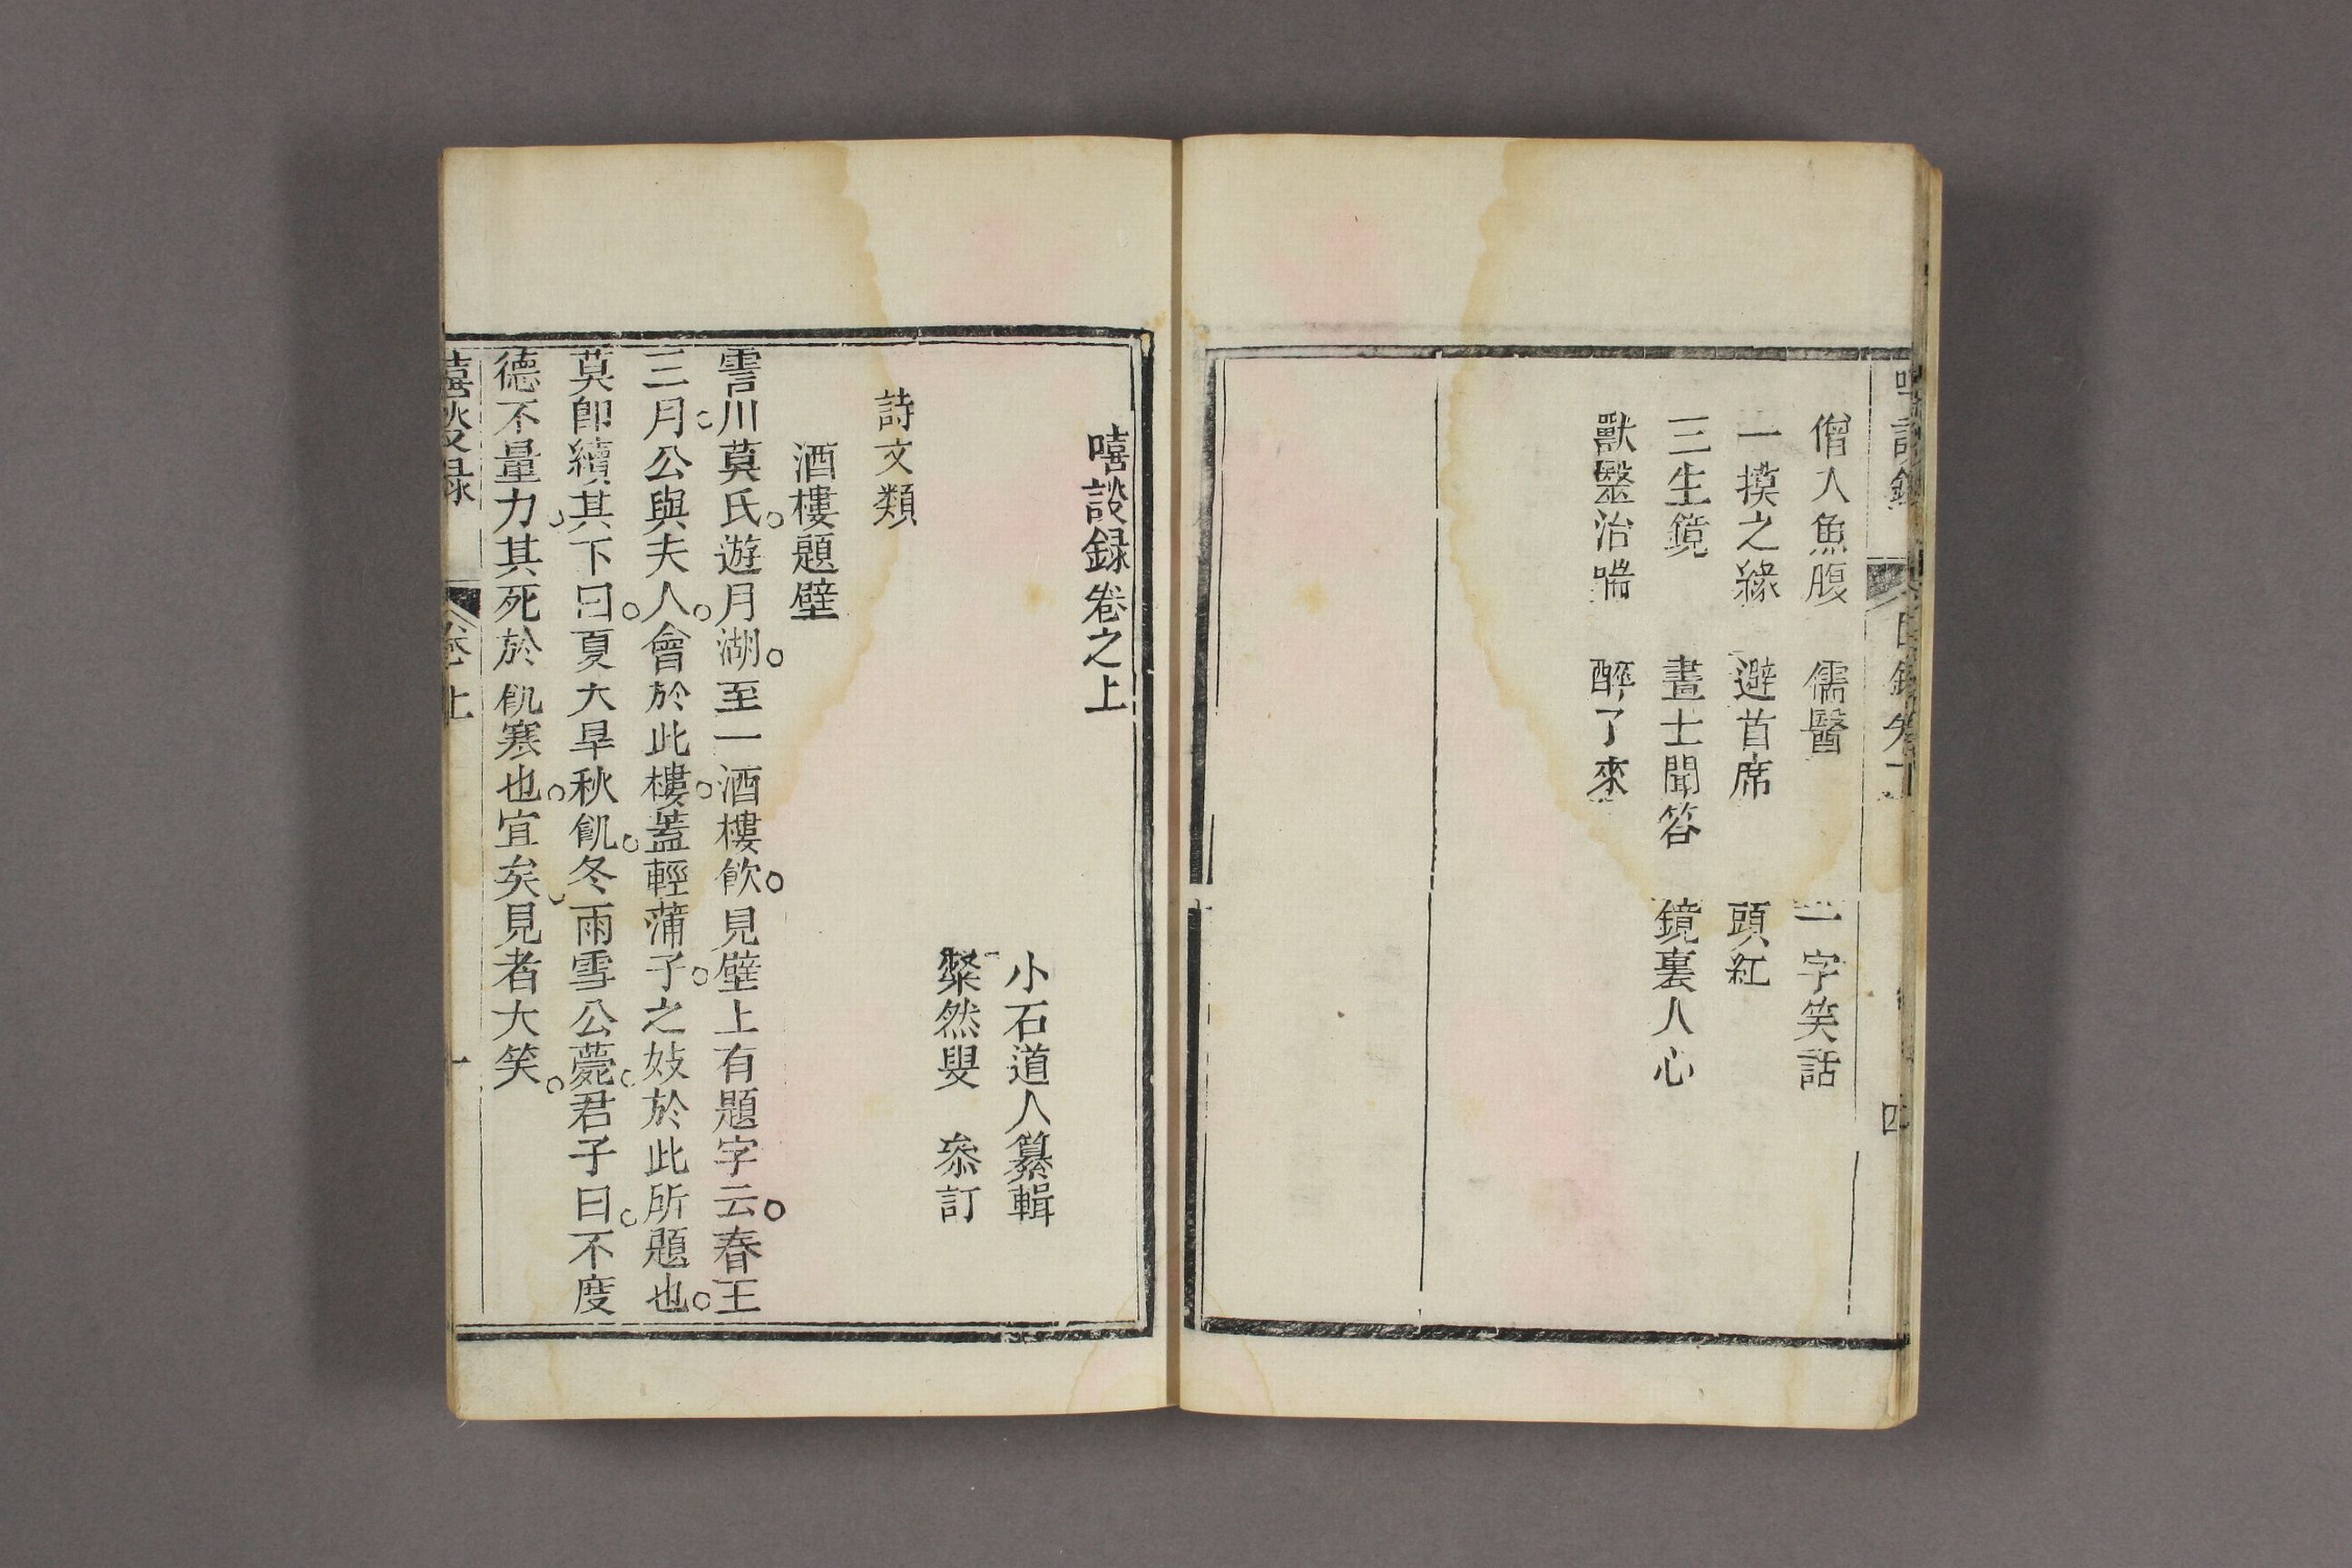 僧人魚腹 儒醫 一字笑話
一摸之緣 避首席 頭紅
三生鏡 畫士聞答 鏡裏人心
獸醫治喘 醉了來
嘻談録卷之上
小石道人纂輯
粲然叟 叅訂
詩文類
酒樓題壁
霅川莫氏。遊月湖。至一酒樓飲。見壁上有題字云。春王
三月。公與夫人。會於此樓。蓋輕蒲子。之妓於此所題也。
莫卽續其下曰。夏大旱秋飢。冬雨雪公薨。君子曰。不度
德不量力。其死於飢寒也。宜矣。見者大笑。